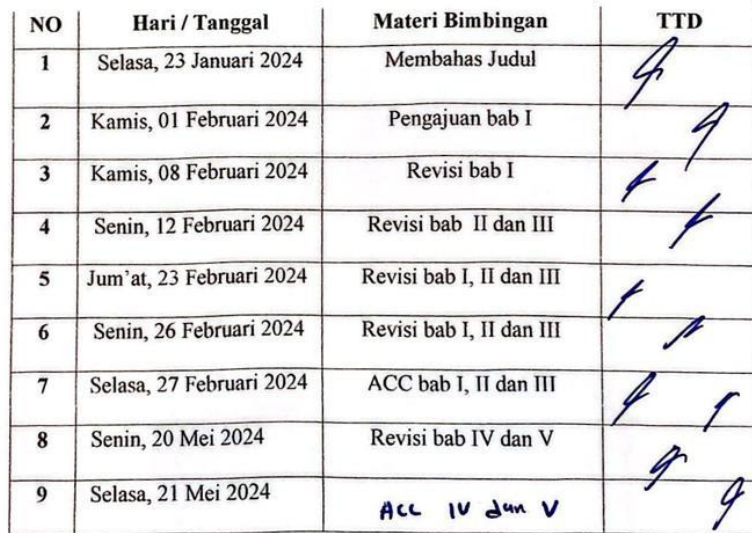 NO Hari / Tanggal Materi Bimbingan TTD
1 Selasa, 23 Januari 2024 Membahas Judul
2 Kamis, 01 Februari 2024 Pengajuan bab I
3 Kamis, 08 Februari 2024 Revisi bab I
4 Senin, 12 Februari 2024 Revisi bab II dan III
5 Jum'at, 23 Februari 2024 Revisi bab I, II dan III
6 Senin, 26 Februari 2024 Revisi bab I, II dan III
7 Selasa, 27 Februari 2024 ACC bab I, II dan III
8 Senin, 20 Mei 2024 Revisi bab IV dan V
9 Selasa, 21 Mei 2024 Acc IV dan V